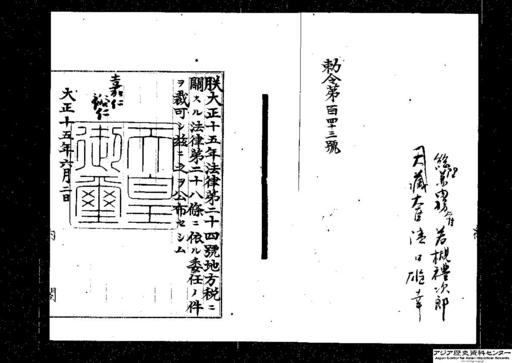 若槻禮次郎
大藏大臣 濱口雄幸
勅令第百四十三號
朕大正十五年法律第二十四號地方税ニ
關スル法律第二十八條ニ依ル委任ノ件
ヲ裁可シ茲ニ之ヲ公布セシム
嘉仁
裕仁
天皇
御璽
大正十五年六月二日
内閣
アジア歴史資料センター
Japan Center for Asian Historical Records